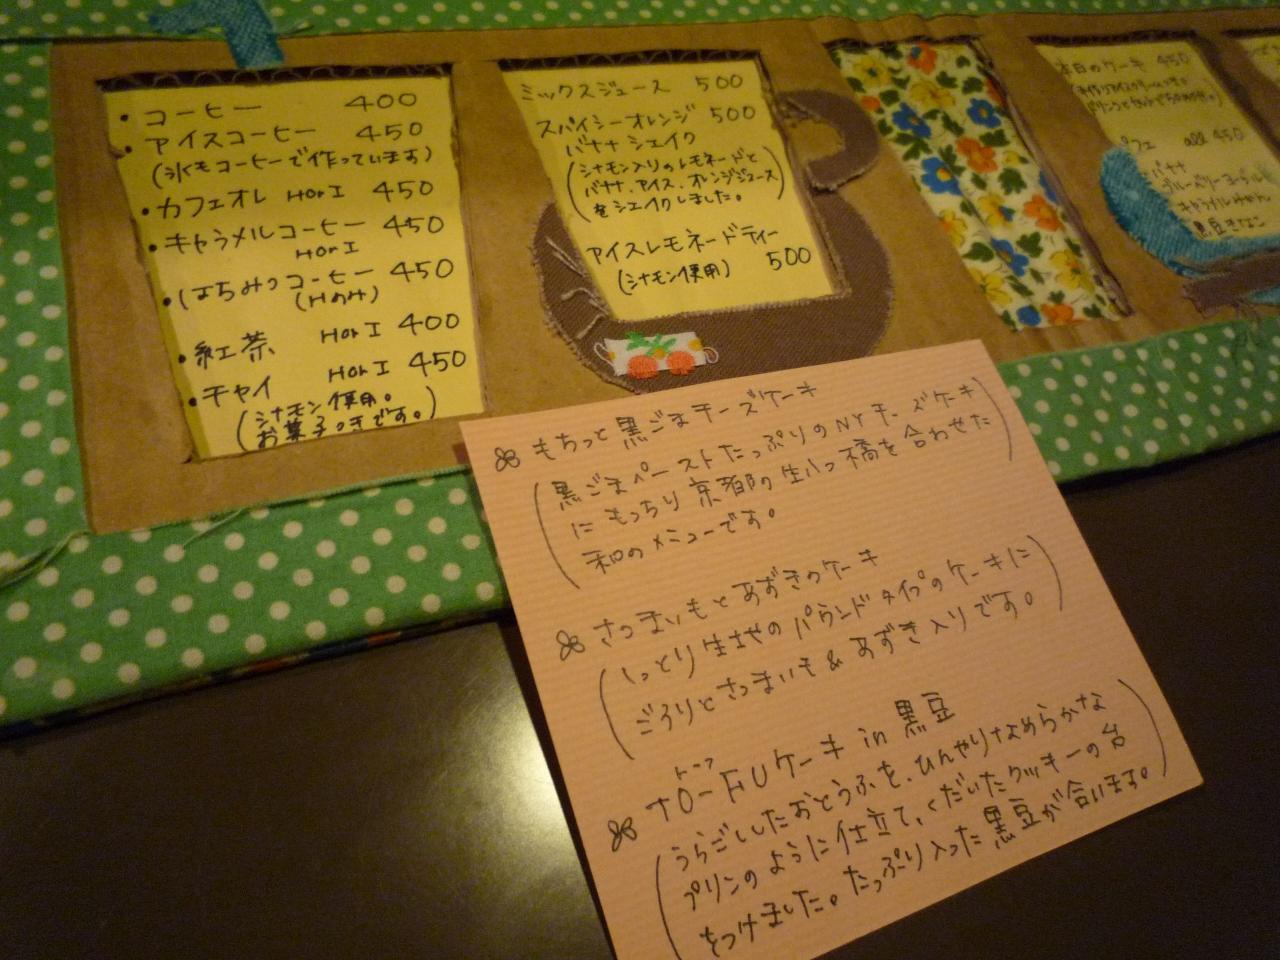 ・コーヒー 400
・アイスコーヒー 450
(氷もコーヒーで作っています)
・カフェオレ HorI 450
・キャラメルコーヒー 450
HorI
・はちみつコーヒー 450
(Hのみ)
・紅茶 HorI 400
・チャイ HorI 450
(シナモン使用。
お菓子つきです。)
ミックスジュース 500
スパイシーオレンジ 500
バナナシェイク
(シナモン入りのレモネードと
バナナ、アイス、オレンジジュース
をシェイクしました。)
アイスレモネードティー
(シナモン使用) 500
本日のケーキ 450
パフェ all 450
バナナ
ブルーベリーヨーグルト
黒豆きなこ
もちっと黒ごまチーズケーキ
(黒ごまペーストたっぷりのNYチーズケーキ
にもっちり京都の生八つ橋を合わせた
和のメニューです。)
さつまいもとあずきのケーキ
(しっとり生地のパウンドタイプのケーキに
ごろりとさつまいも&あずき入りです。)
トーフ
TO-FUケーキ in 黒豆
(うらごししたおとうふを、ひんやりなめらかな
プリンのように仕立て、くだいたクッキーの台
をつけました。たっぷり入った黒豆が合います。)